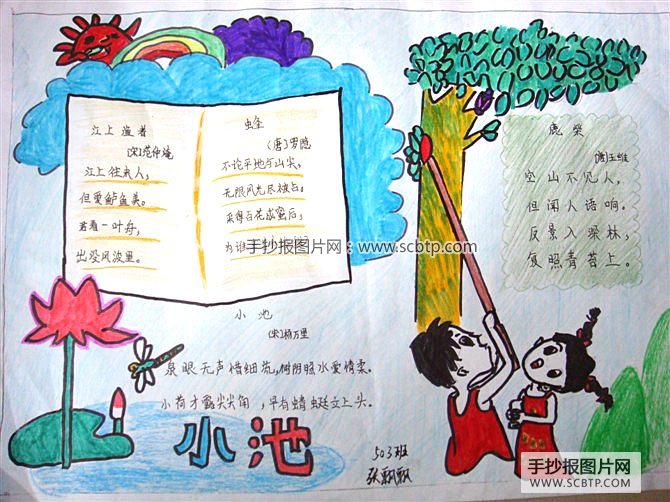 江上渔者
[宋]范仲淹
江上往来人，
但爱鲈鱼美。
君看一叶舟，
出没风波里。
蜂
(唐)罗隐
不论平地与山尖，
无限风光尽被占。
采得百花成蜜后，
为谁
鹿柴
[唐]王维
空山不见人，
但闻人语响。
反景入深林，
复照青苔上。
手抄报图片网：www.scbtp.com
小池
[宋]杨万里
泉眼无声惜细流，树阴照水爱晴柔。
小荷才露尖尖角，早有蜻蜓立上头。
小池
503班
张飘飘
手抄报图片网
WWW.SCBTP.COM